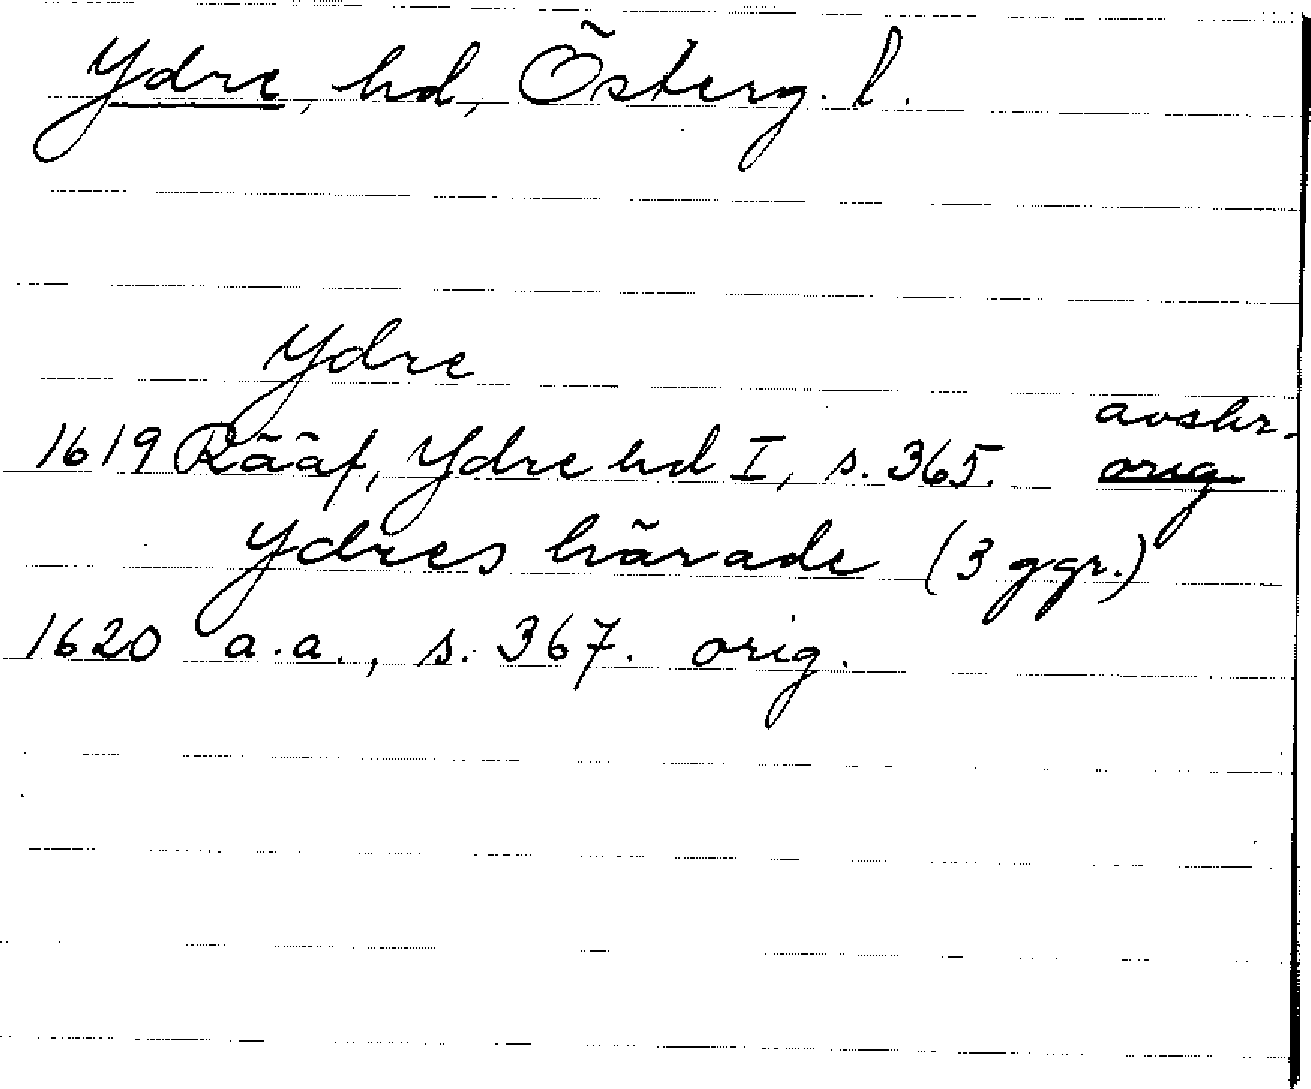 Ydre, hd, Österg. l.
Ydre
avskr.
1619 Rääf, Ydre hd I, s. 365. orig
Ydres härade (3 ggr.)
1620 a.a., s. 367. orig.